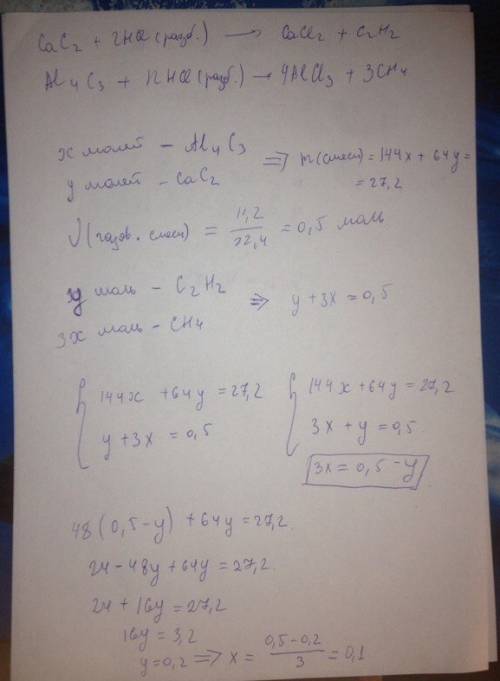 CaC₂ + 2HCl (разб.) → CaCl₂ + C₂H₂
Al₄C₃ + 12HCl (разб.) → 4AlCl₃ + 3CH₄
x молей – Al₄C₃
y молей – CaC₂
⇒ m(смеси) = 144x + 64y =
= 27,2
ν(газов. смеси) = 11,2/22,4 = 0,5 моль
y моль – C₂H₂
3x моль – CH₄
⇒ y + 3x = 0,5
{ 144x + 64y = 27,2
y + 3x = 0,5
{ 144x + 64y = 27,2
3x + y = 0,5
3x = 0,5 – y
48(0,5–y) + 64y = 27,2
24 – 48y + 64y = 27,2
24 + 16y = 27,2
16y = 3,2
y = 0,2 ⇒ x = (0,5–0,2)/3 = 0,1